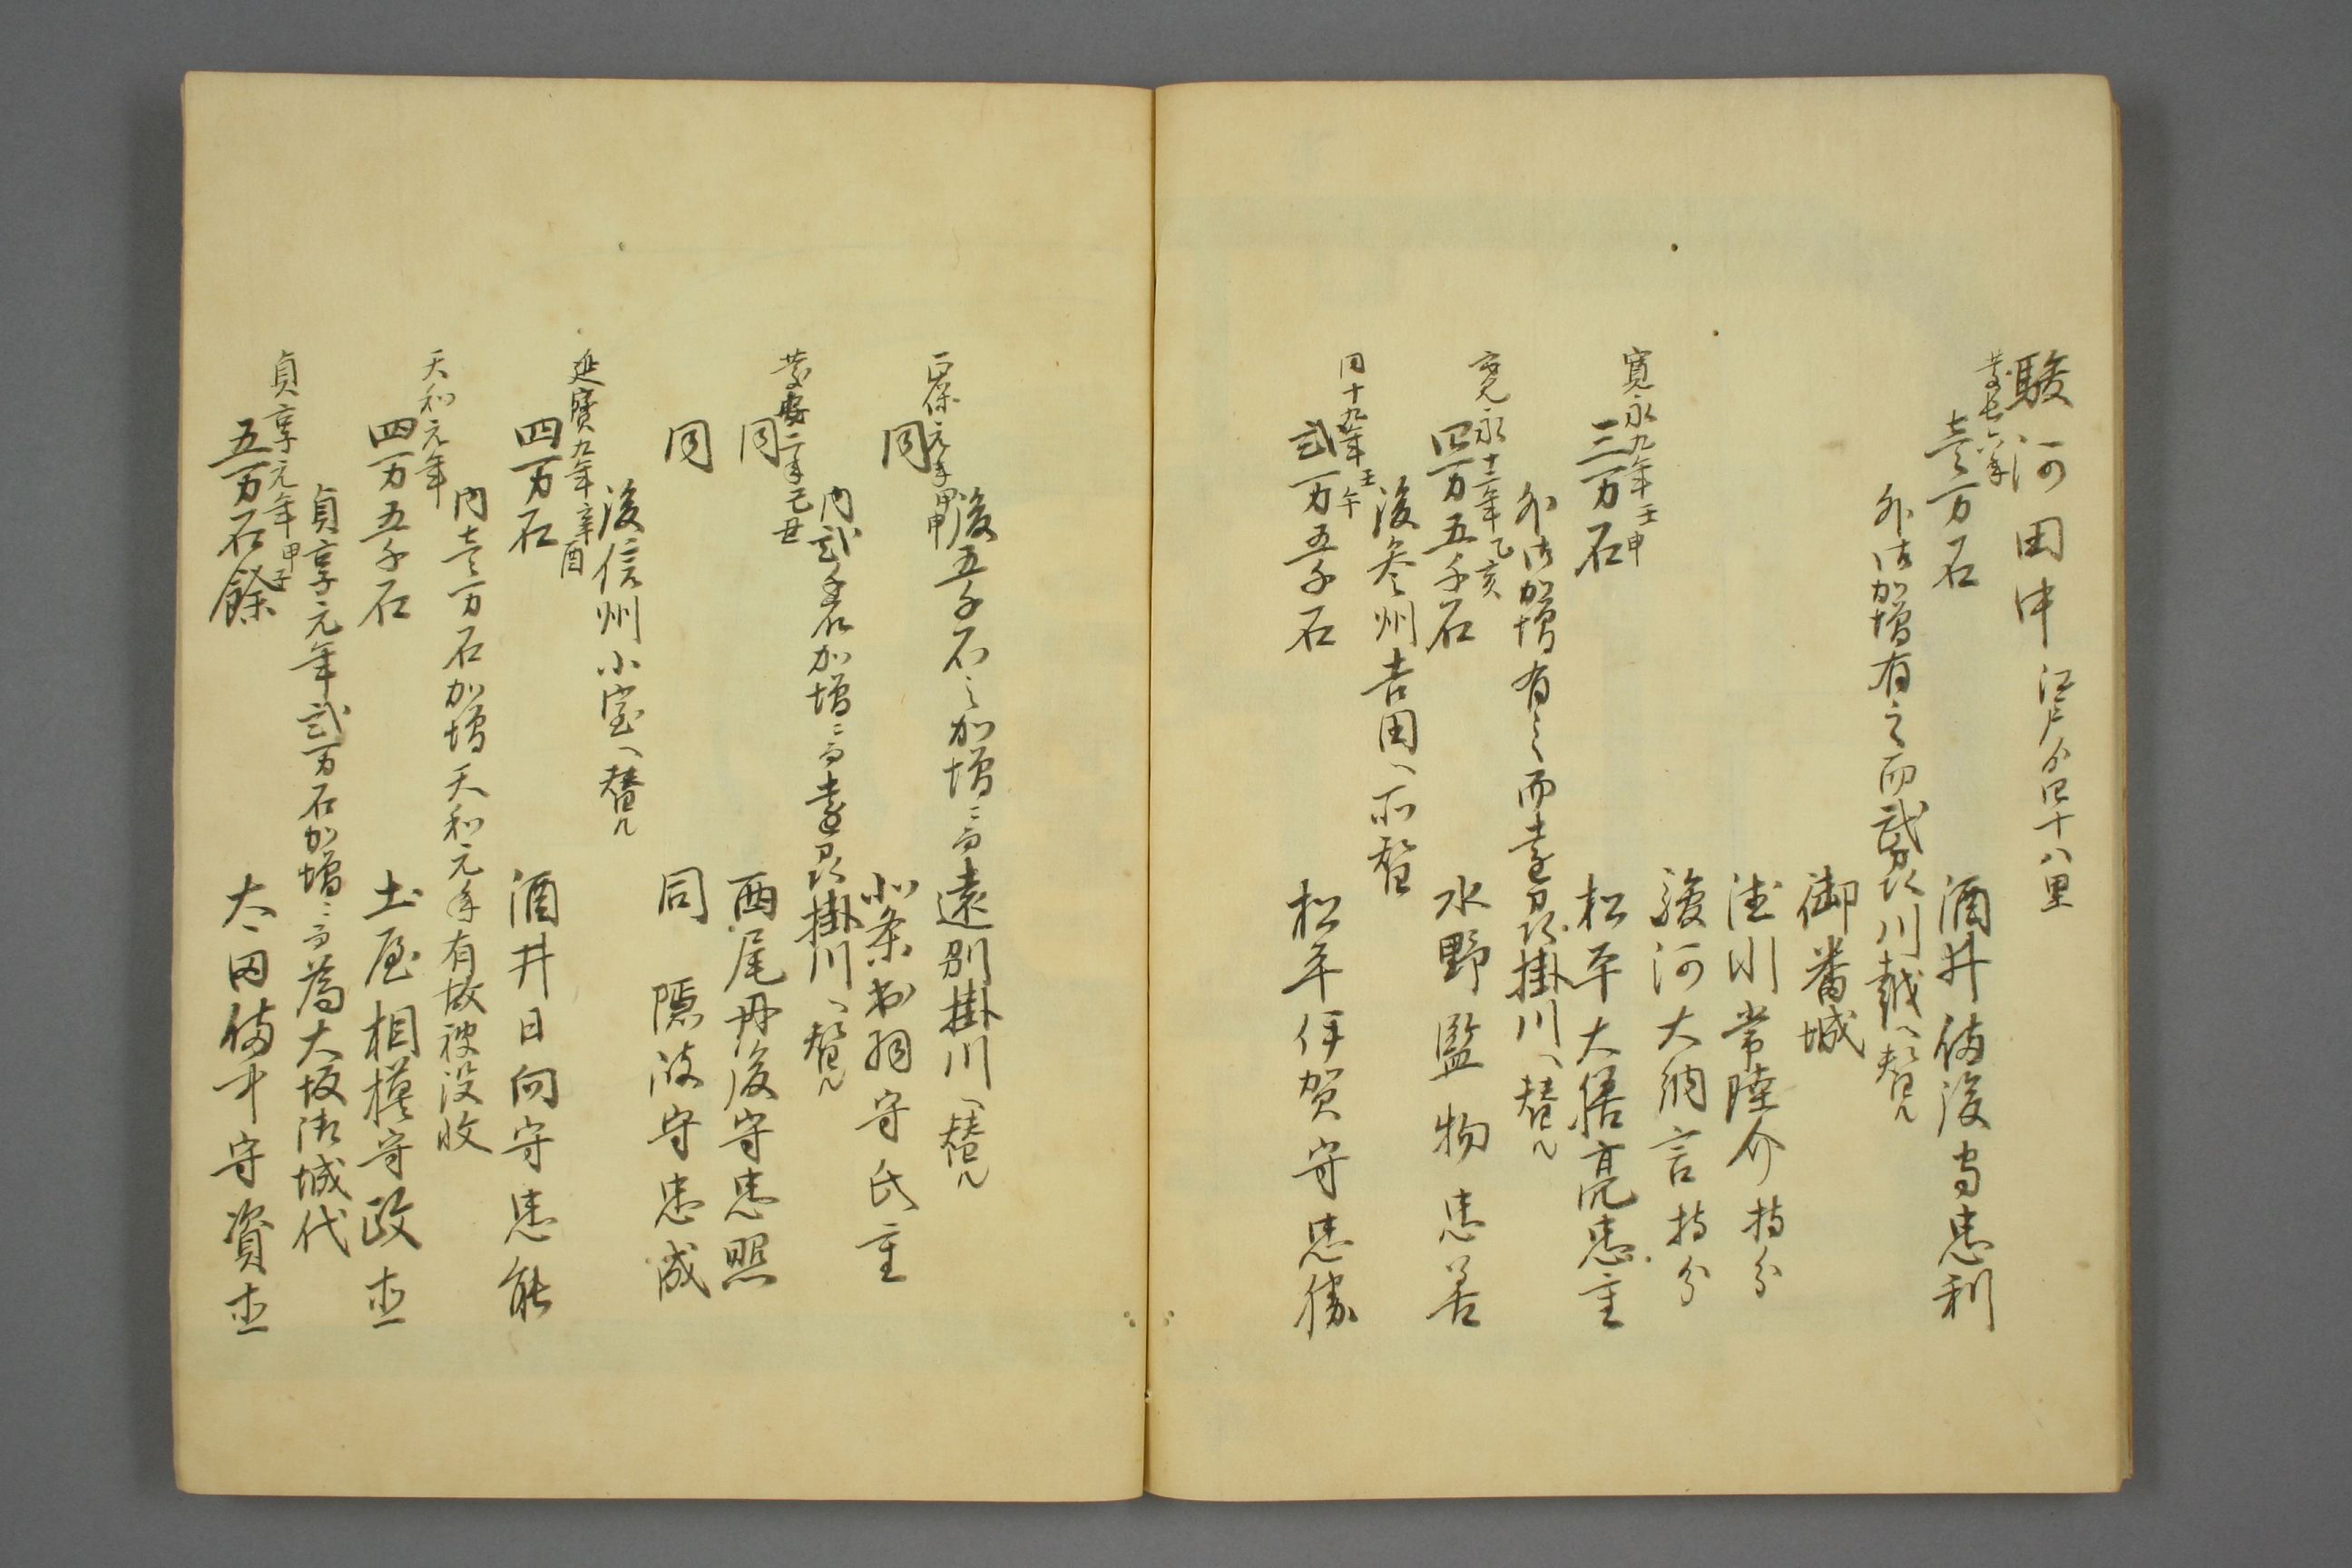 駿河田中 江戸ゟ四十八里
慶長六年
壱万石 酒井備後守忠利
外御加増有之而武州川越ヘ替ル
御番城
徳川常陸介持分
駿河大納言持分
寛永九年壬申
三万石 松平大膳亮忠重
外御加増有之而遠州掛川ヘ替ル
寛永十二年乙亥
四万五千石 水野監物忠善
後参州吉田ヘ所替
同十九年壬午
弐万五千石 松平伊賀守忠勝
後五千石之加増ニ而遠州掛川ヘ替ル
正保元年甲申
同 北条出羽守氏重
内弐千石加増ニ而遠州掛川ヘ替ル
慶安二年己丑
同 西尾丹後守忠照
同 同 隠岐守忠成
後信州小室ヘ替ル
延寶九年辛酉
四万石 酒井日向守忠能
内壱万石加増天和元年有故被没收
天和元年
四万五千石 土屋相模守政直
貞享元年弐万石加増ニ而為大坂御城代
貞享元年甲子
五万石餘 太田備中守資直